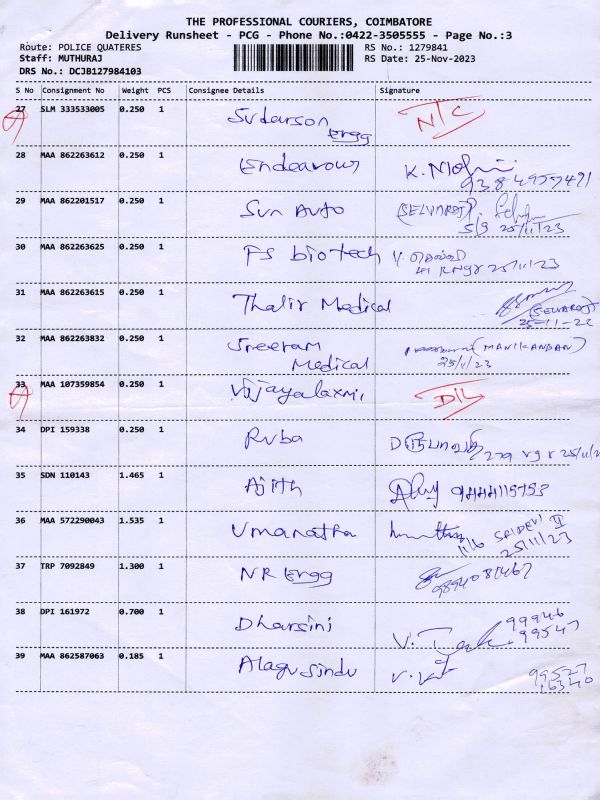 THE PROFESSIONAL COURIERS, COIMBATORE
Delivery Runsheet - PCG - Phone No.:0422-3505555 - Page No.:3
Route: POLICE QUATERES RS No.: 1279841
Staff: MUTHURAJ RS Date: 25-Nov-2023
DRS No.: DCJB127984103
S No Consignment No Weight PCS Consignee Details Signature
27 SLM 333533005 0.250 1 Sudarson Engg NTC
28 MAA 862263612 0.250 1 Endeavour K. Mohni
9384957491
29 MAA 862201517 0.250 1 Sun Auto (SELVARAJ).
S/g 25/11/23
30 MAA 862263625 0.250 1 FS biotech
25/11/23
31 MAA 862263615 0.250 1 Thalir Medical
(SELVARAJ)
25-11-22
32 MAA 862263832 0.250 1 Sreeram Medical (MANIKANDAN)
25/11/23
33 MAA 107359854 0.250 1 Vijayalaxmi DIL
34 DPI 159338 0.250 1 Ruba
35 SDN 110143 1.465 1 Ajith 9444115753
36 MAA 572290043 1.535 1 Umanatha
1/16 SRIDEVI II
25/11/23
37 TRP 7092849 1.300 1 NR Engg
9894081467
38 DPI 161972 0.700 1 Dharsini
99946
99547
39 MAA 862587063 0.185 1 Alagu sindu
99527
16340